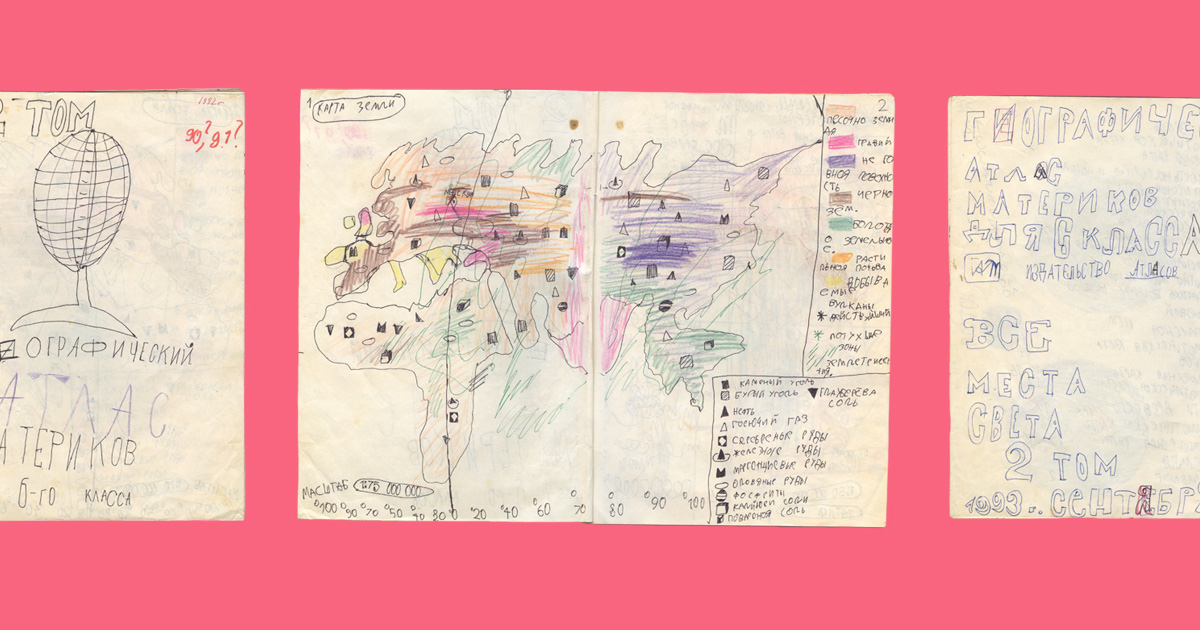 ТОМ
1992 г.
90? 91?
ОГРАФИЧЕСКИЙ
АТЛАС
АТЕРИКОВ
6-ГО КЛАССА
1
КАРТА ЗЕМЛИ
2
ПЕСОЧНО ЗЕМ
ГРАВИЙ
НЕ РО
ВНАЯ ПОВЕРХНО
СТЬ
ЧЕРНО
ЗЕМ.
БОЛОТО
С ЗЕМЛЕЮ
РАСТИ
ВУЛКАНЫ
ДЕЙСТВУЮЩИЙ
ПОТУХШИЕ
ЗОНЫ
ЗЕМЛЕТРЯСЕ
НИЯ.
КАМЕННЫЙ УГОЛЬ
БУРЫЙ УГОЛЬ
ГЛАУБЕРОВА
СОЛЬ
НЕФТЬ
ГОРЮЧИЙ ГАЗ
СЕРЕБРЕНЫЕ РУДЫ
ЖЕЛЕЗНЫЕ РУДЫ
МАРГАНЦЕВЫЕ РУДЫ
ОЛОВЯНЫЕ РУДЫ
ФОСФОРИТЫ
КАЛИЙНЫЕ СОЛИ
ПОВАРЕНАЯ СОЛЬ
МАСШТАБ 1:75 000 000
100 90 70 50 40 30 0 20 40 60 70 80 90 100
ГИОГРАФИЧЕ
АТЛАС
МАТЕРИКОВ
ДЛЯ 6 КЛАССА
АМ ИЗДАТЕЛЬСТВО АТЛАСОВ
ВСЕ
МЕСТА
СВЕТА
2 ТОМ
1993 г. СЕНТЯБРЬ